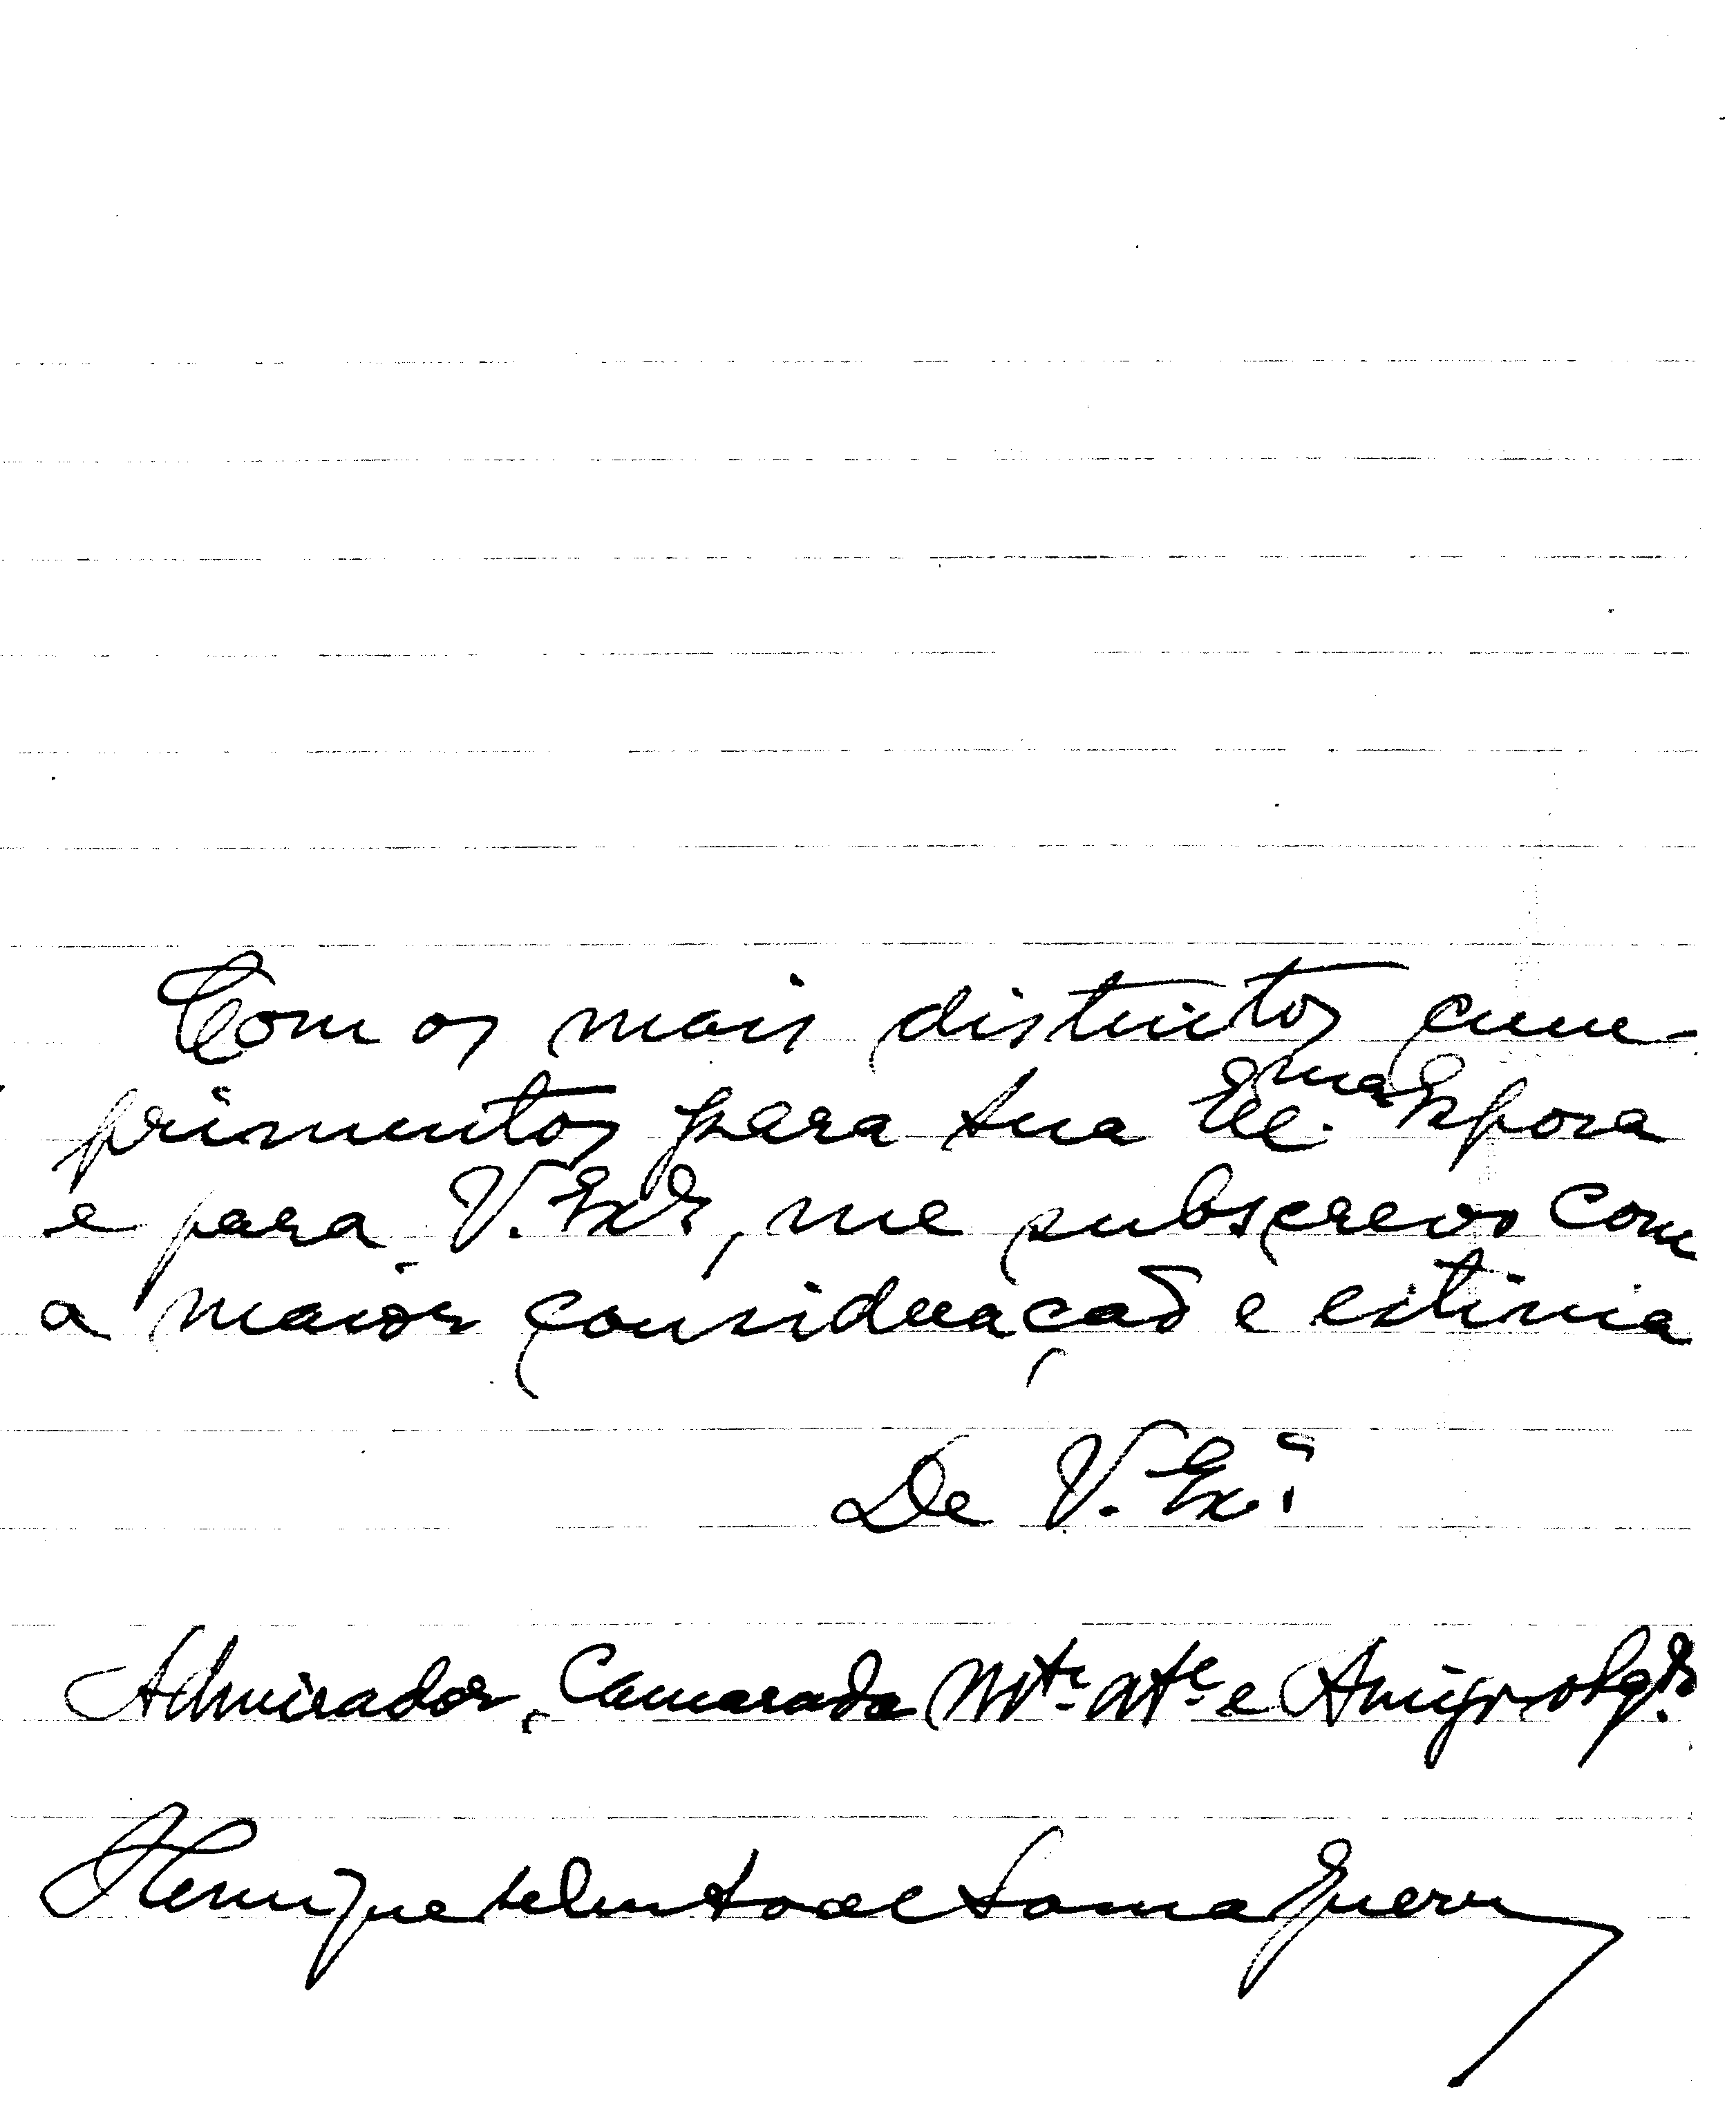 Com os mais distintos cum-
primentos para sua Ex.ma Esposa
e para V. Exª, me subscrevo com
a maior consideração e estima
De V. Exª
Admirador, Camarada Mtº Attº e Amigo obgdº
Henrique de Sousa Guerra